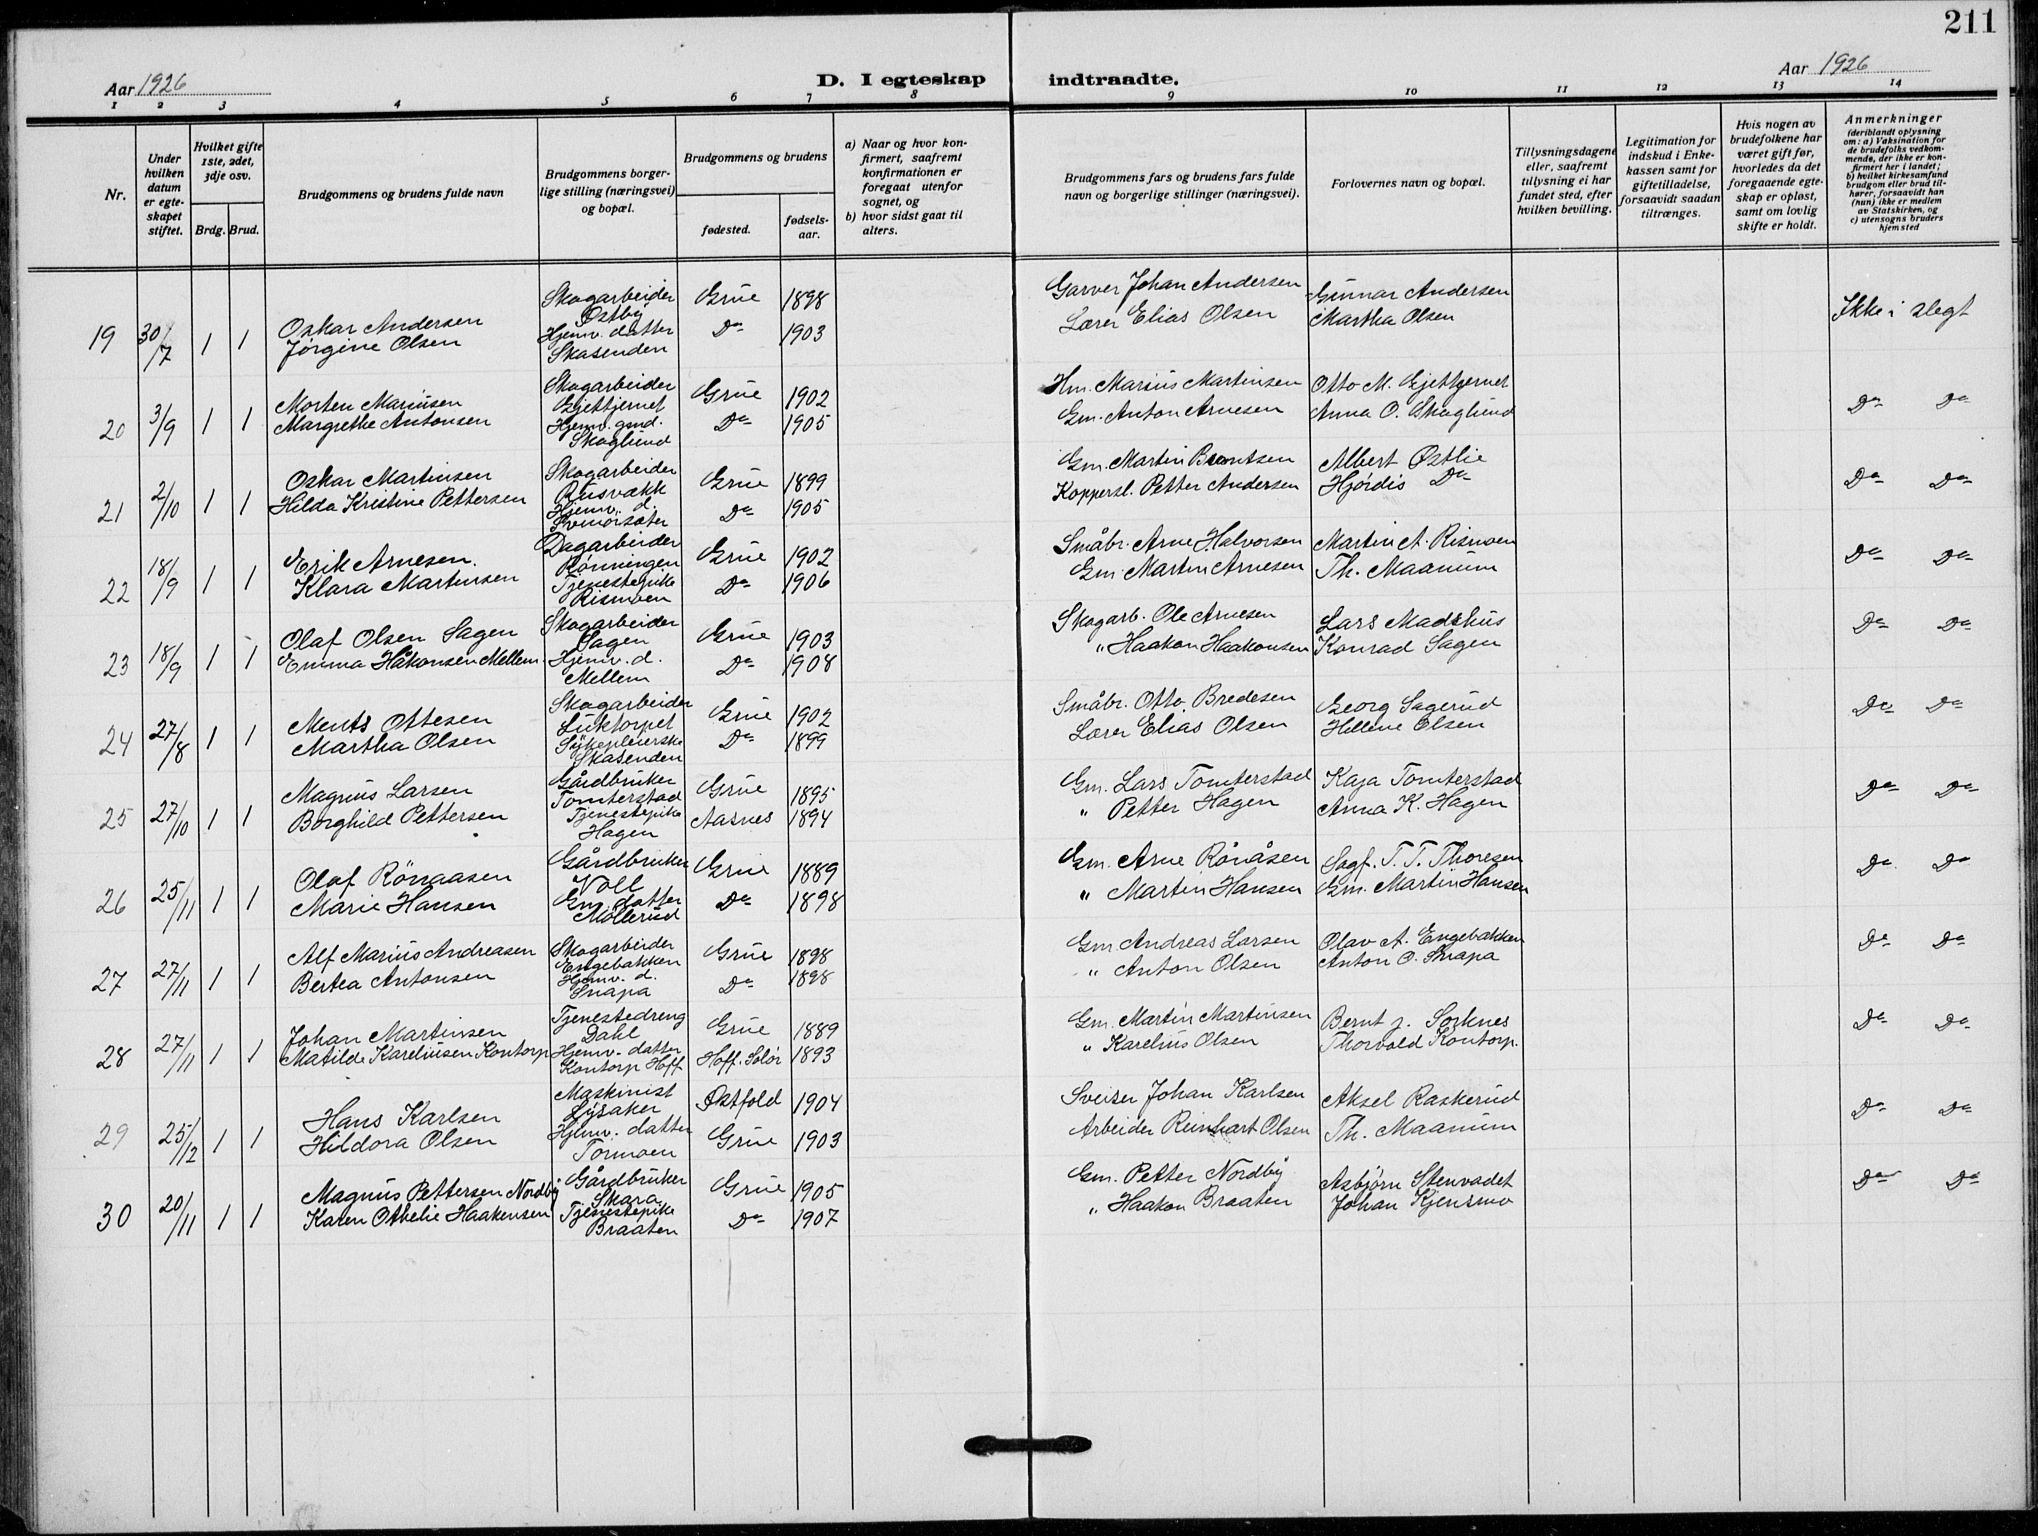 211
Aar 1926
D. I egteskap indtraadte.
Aar 1926
1 2 3 4 5 6 7 8 9 10 11 12 13 14
Nr.
Under hvilken datum er egteskapet stiftet.
Hvilket gifte 1ste, 2det, 3dje osv.
Brdg. Brud.
Brudgommens og brudens fulde navn
Brudgommens borgerlige stilling (næringsvei) og bopæl.
Brudgommens og brudens
fødested.
fødselsaar.
a) Naar og hvor konfirmert, saafremt konfirmationen er foregaat utenfor sognet, og
b) hvor sidst gaat til alters.
Brudgommens fars og brudens fars fulde navn og borgerlige stillinger (næringsvei).
Forlovernes navn og bopæl.
Tillysningsdagene eller, saafremt tillysning ei har fundet sted, efter hvilken bevilling.
Legitimation for indskud i Enkekassen samt for giftetilladelse, forsaavidt saadan tiltrænges.
Hvis nogen av brudefolkene har været gift før, hvorledes da det foregaaende egteskap er opløst, samt om lovlig skifte er holdt.
Anmerkninger
(deriblandt oplysning om: a) Vaksination for de brudefolks vedkommende, der ikke er konfirmert her i landet; b) hvilket kirkesamfund brudgom eller brud tilhører, forsaavidt han (hun) ikke er medlem av Statskirken, og c) utensogns bruders hjemsted
19 30/7 1 1 Oskar Andersen Skogarbeider Østby Grue 1898 Garver Johan Andersen Gunnar Andersen Ikke i slegt
Jørgine Olsen Hjemv. datter Skasenden Do 1903 Lærer Elias Olsen Martha Olsen
20 3/9 1 1 Morten Mariusen Skogarbeider Gjettjernet Grue 1902 Hm. Marius Martinsen Otto M. Gjettjernet Do Do
Margrethe Antonsen Hjemv. gmd. Skoglund Do 1905 Gm. Anton Arnesen Anna O. Skoglund
21 2/10 1 1 Oskar Martinsen Skogarbeider Rusvækk Grue 1899 Gm. Martin Berntsen Albert Østlie Do Do
Hilda Kristine Pettersen Hjemv. d. Do 1905 Koppersl. Petter Andersen Hjørdis Do
22 18/9 1 1 Erik Arnesen. Dagarbeider Rønningen Grue 1902 Småbr. Arne Halvorsen Martin A. Rismoen Do Do
Klara Martinsen Tjenestepike Rismoen Do 1906 Gm. Martin Arnesen Th. Maanum
23 18/9 1 1 Olaf Olsen Sagen Skogarbeider Sagen Grue 1903 Skogarb. Ole Arnesen Lars Madshus Do Do
Emma Håkonsen Mellem. Hjemv. d. Mellem Do 1908 " Haakon Haakonsen Konrad Sagen
24 27/8 1 1 Ments Ottesen Skogarbeider Luktorpet Grue 1902 Småbr. Otto Bredesen Georg Sagerud Do Do
Martha Olsen Sykepleierske Skasenden Do 1899 Lærer Elias Olsen Hellene Olsen
25 27/10 1 1 Magnus Larsen Gårdbruker Tomterstad Grue 1895 Gm. Lars Tomterstad Kaja Tomterstad Do Do
Borghild Pettersen Tjenestepike Hagen Aasnes 1894 " Petter Hagen Anna K. Hagen
26 25/11 1 1 Olaf Rönaasen Gårdbruker Voll Grue 1889 Gm. Arne Rönåsen Sogf. T. T. Thoresen Do Do
Marie Hansen Gm. datter Möllerud Do 1898 " Martin Hansen Gm. Martin Hansen
27 27/11 1 1 Alf Marius Andreasen Skogarbeider Engebakken Grue 1898 Gm. Andreas Larsen Olav A. Engebakken Do Do
Bertea Antonsen Hjemv. d. Snapa Do 1898 " Anton Olsen Anton O. Snapa
28 27/11 1 1 Johan Martinsen Tjenestedreng Dahl Grue 1889 Gm. Martin Martinsen Bernt J. Sorknes Do Do
Matilde Kareliusen Kontorp Hjemv. datter Kontorp Hoff Hoff. Solør 1893 " Karelius Olsen Thorvald Kontorp.
29 25/12 1 1 Hans Karlsen Maskinist Lysaker Østfold 1904 Sveiser Johan Karlsen Aksel Raskerud Do Do
Hildora Olsen Hjemv. datter Tormoen Grue 1903 Arbeider Reinhart Olsen Th. Maanum
30 20/11 1 1 Magnus Pettersen Nordby Gårdbruker Skara Grue 1905 Gm. Petter Nordby Asbjørn Stenvadet Do Do
Karen Othelie Haakensen Tjenestepike Braaten Do 1907 " Haakon Braaten Johan Kjensmo